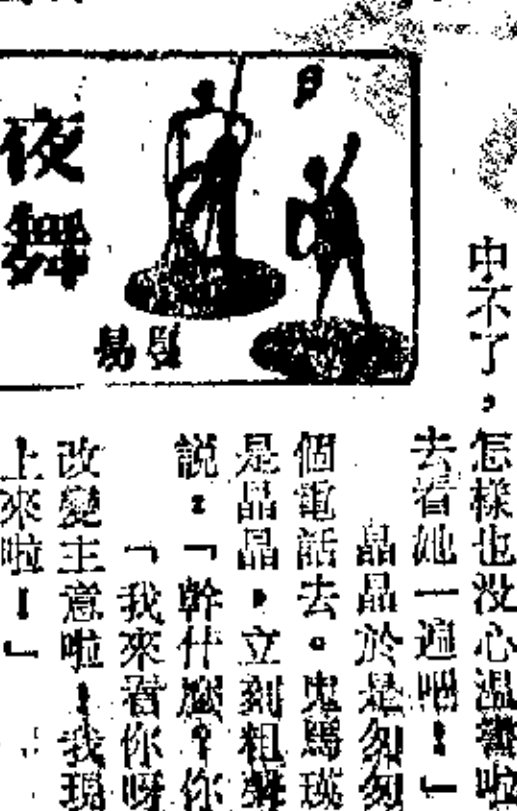 中不了，怎樣也没心温書啦
去看她一遍吧！」
晶晶於是匆匆
個電話去。鬼馬瑛
是晶晶，立刻粗聲
説：「幹什麽？你
「我來看你呀
改變主意啦！我現
上來啦！」
夜舞
易